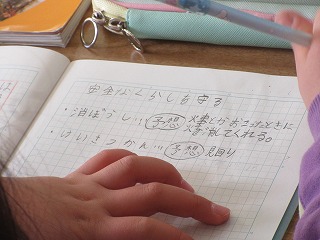 安全なくらしを守る
・消ぼうし…予想 火事とかおこったときに
火を消してくれる。
・けいさつかん…予想 見回り